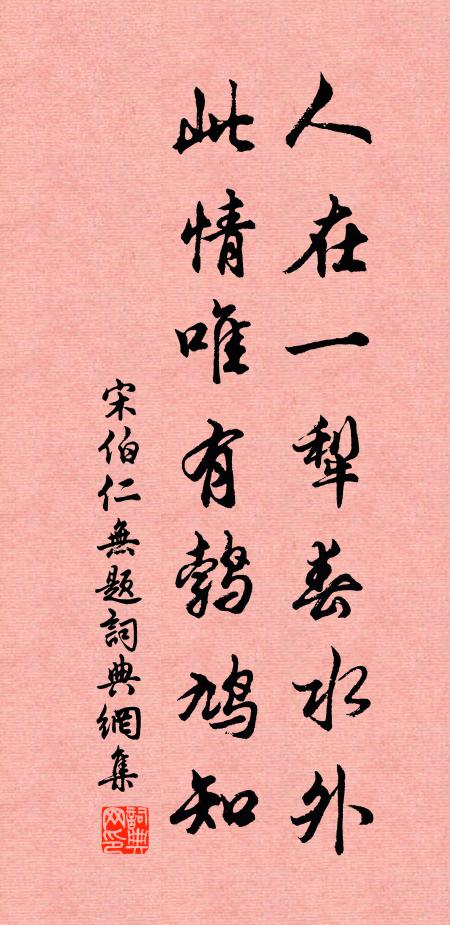 人在一犁春水外
此情唯有鹁鸠知
宋伯仁無題詞典網集
詞典网印